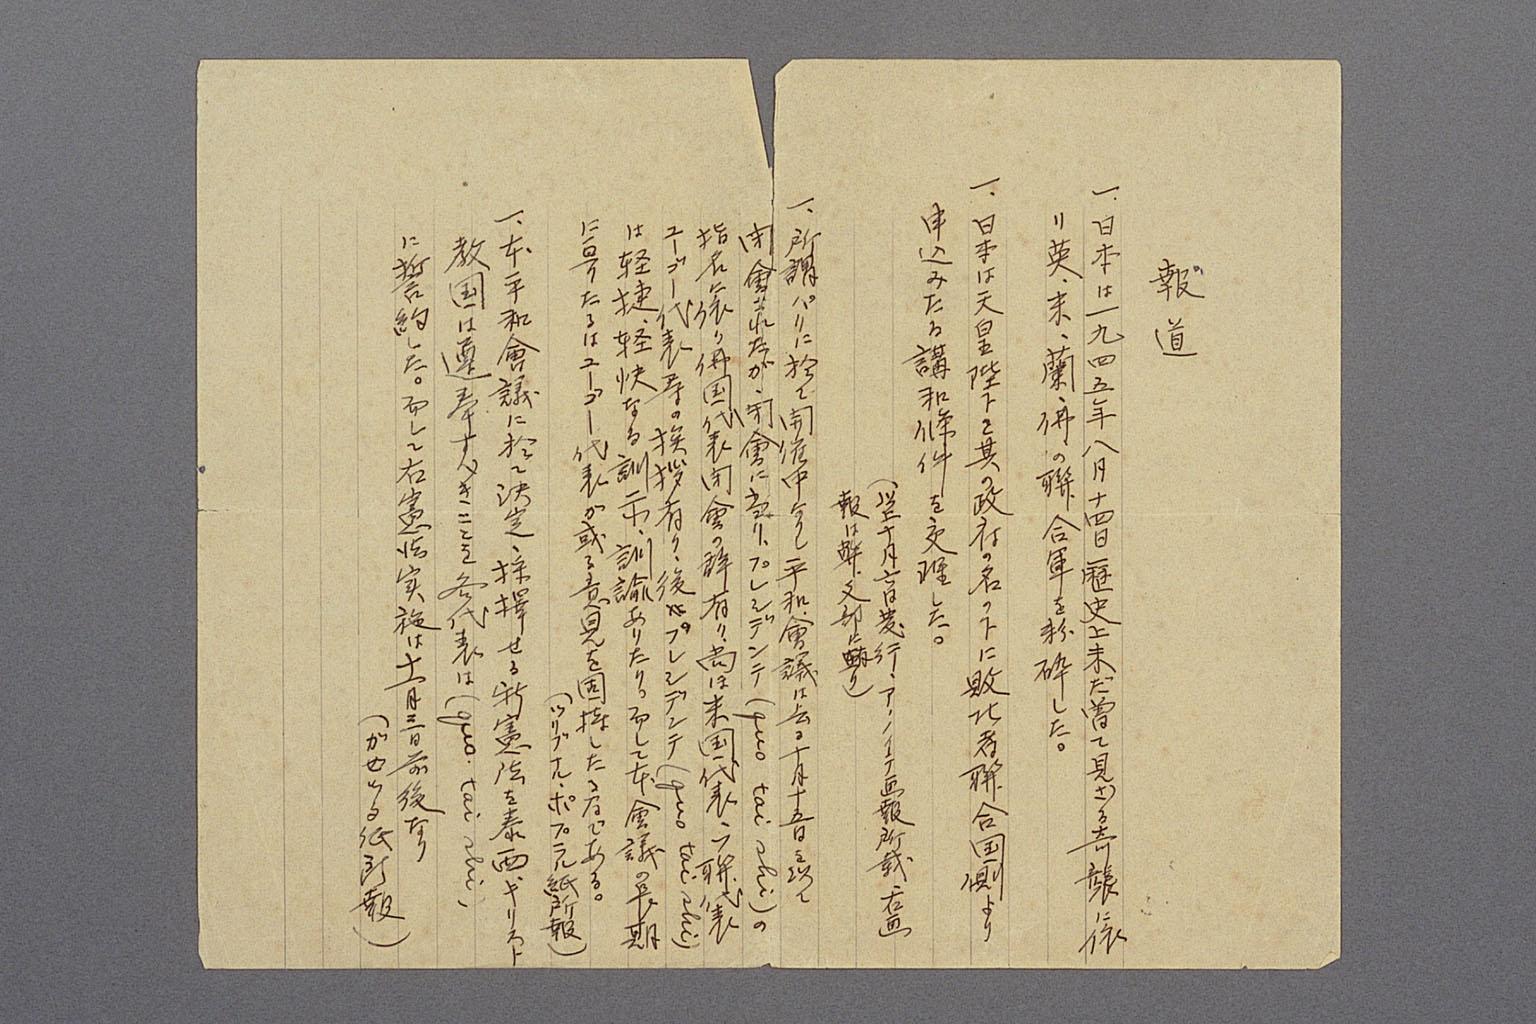 報道
一、日本は一九四五年八月十四日歴史上未だ曽て見ざる奇襲に依
り英、米、蘭、佛、の聯合軍を粉砕した。
一、日本は天皇陛下と其の政府の名の下に敗北者聯合国側より
申込みたる講和條件を受理した。
十月六日発行、アノイ画報所載、右画
報は鮮、文部に
一、所謂パリに於て開催中なりし平和會議は去る十月十五日を以て
閉會されたが、閉會に当り、プレシデンテ(quo tai shi)の
指名に依り佛国代表閉會の辞有り、尚ほ米国代表、ソ聯代表
ユーゴー代表等の挨拶有り、後プレシデンテ(quo tai shi)
は軽捷、軽快なる訓示、訓諭ありたり。而して本會議の長期
に亘りたるはユーゴー代表が或る意見を固持したる為である。
(ツリブナル・ポプラル紙所報)
一、本平和會議に於て決定、採擇せる新憲法を泰西、キリスト
教国は遵奉すべきことを各代表は(quo. tai shi)
に誓約した。而して右憲法実施は十一月三日前後なり
(がせゐる紙所報)